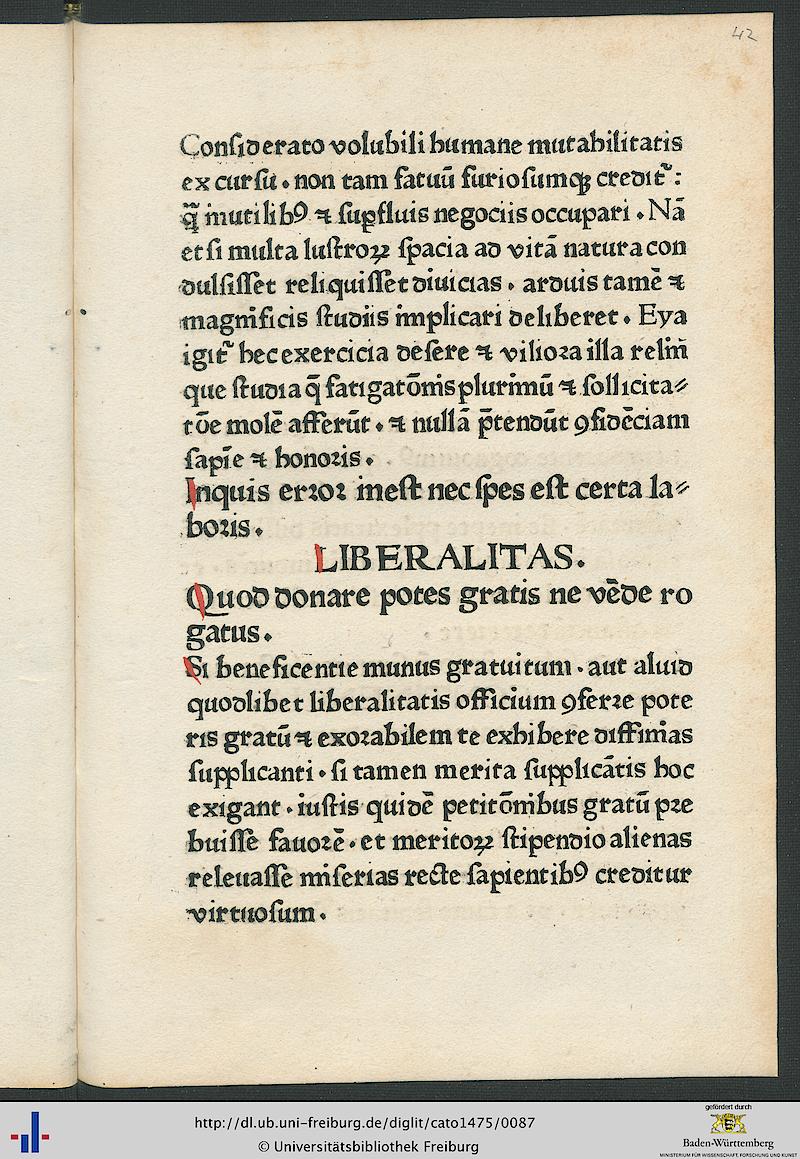 42
Conſiderato volubili humane mutabilitatis
ex curſu . non tam fatuū furioſumqꝫ credit᷑ :
q̄ȝ inutilibꝰ ⁊ ſuꝑfluis negociis occupari . Nā
et ſi multa luſtroꝝ ſpacia ad vitā natura con
dulſiſſet reliquiſſet diuicias . arduis tamē ⁊
magnificis ſtudiis implicari deliberet . Eya
igit᷑ hec exercicia deſere ⁊ vilioꝛa illa relin̄
que ſtudia q̄ fatigatōnis plurimū ⁊ ſollicita⸗
tōe molē afferūt . ⁊ nullā p̄tendūt ꝯfidēciam
ſapīe ⁊ honoꝛis .
Inquis erꝛoꝛ ineſt nec ſpes eſt certa la⸗
boꝛis .
LIBERALITAS.
Quod donare potes gratis ne vēde ro
gatus .
Si beneficentie munus gratuitum . aut aluid
quodlibet liberalitatis officium ꝯferꝛe pote
ris gratū ⁊ exoꝛabilem te exhibere diffinias
ſupplicanti . ſi tamen merita ſupplicātis hoc
exigant . iuſtis quidē petitōnibus gratū pꝛe
buiſſe fauoꝛē . et meritoꝝ ſtipendio alienas
releuaſſe miſerias recte ſapientibꝰ creditur
virtuoſum .
http://dl.ub.uni-freiburg.de/diglit/cato1475/0087
© Universitätsbibliothek Freiburg
gefördert durch
Baden-Württemberg
MINISTERIUM FÜR WISSENSCHAFT, FORSCHUNG UND KUNST